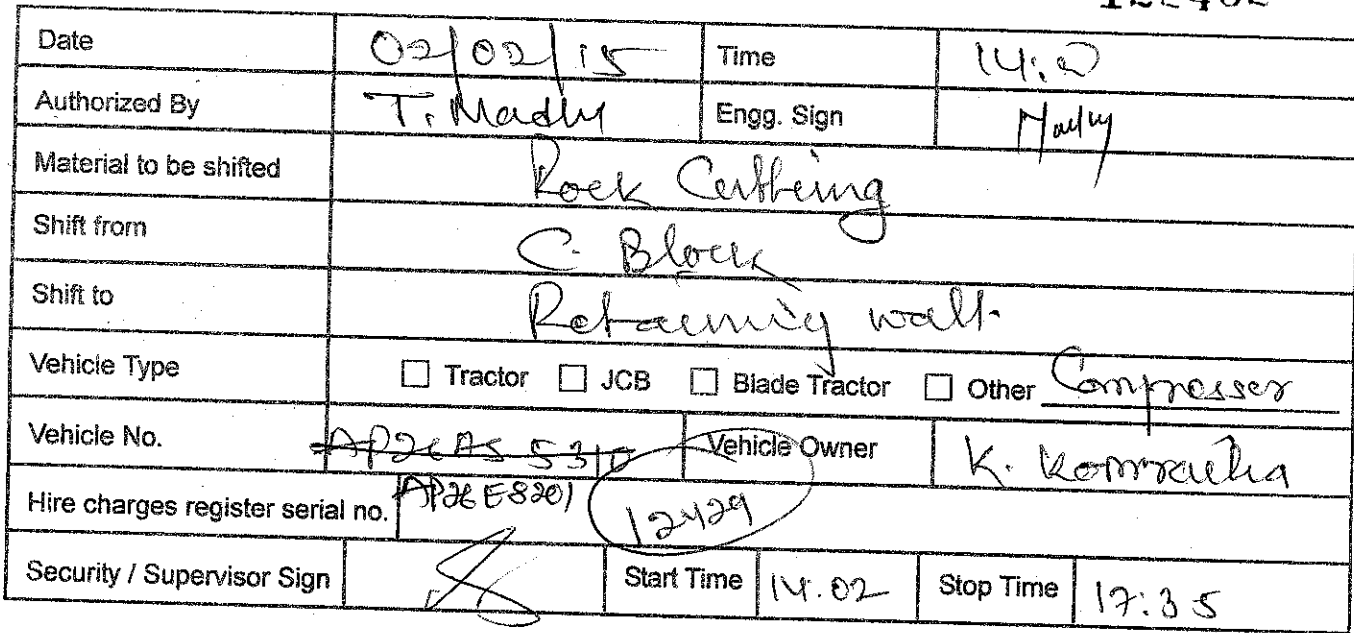 Date 02/02/15 Time
Authorized By T. Madhu Engg. Sign Madhu
Material to be shifted Rock Cutting
Shift from C. Block
Shift to Retaining wall.
Vehicle Type ☐ Tractor ☐ JCB ☐ Blade Tractor ☐ Other Compresser
Vehicle No. AP26 AS 5310 Vehicle Owner K.
AP26 E8201
Hire charges register serial no. 12429
Security / Supervisor Sign Start Time 14.02 Stop Time 17:35